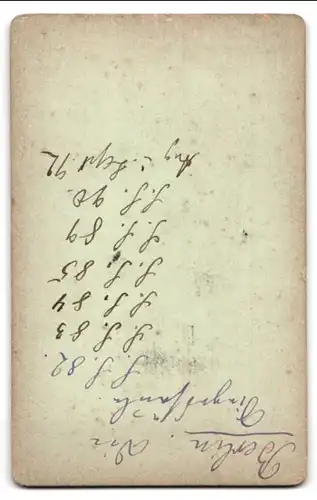 Berlin. Die
Siegessäule.
S. S. 82.
S. S. 83
S. S. 84
S. S. 85
S. S. 89
S. S. 90.
Aug. Sept. 92